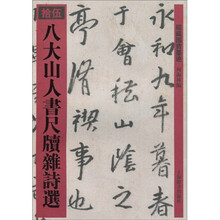 拾伍
八大山人書尺牘雜詩選
永和九年暮春
于會稽山陰之
亭脩禊事也